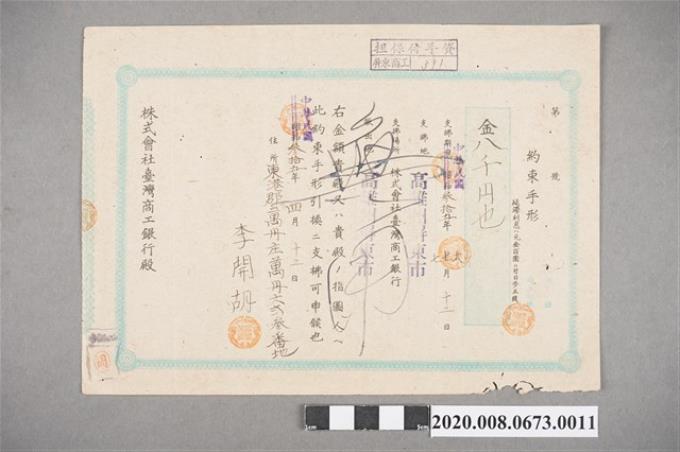 擔保信手貸
屏東商工 891
第 號
約束手形
金八千円也
支拂期日 中華民國 叁拾五年 七月 十二日
支拂地 高雄州屏東市
支拂場所 株式會社臺灣商工銀行
高雄州屏東市
右金額貴殿又ハ貴殿ノ指圖人ヘ
此約束手形引換ニ支拂可申候也
中華民國 叁拾五年 四月 十二日
住所 東港郡萬丹庄萬丹六弍叁番地
李開胡
株式會社臺灣商工銀行殿
2020.008.0673.0011